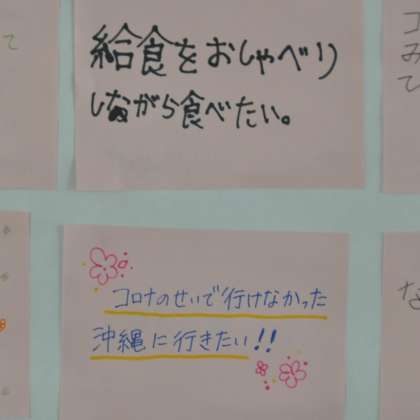 給食をおしゃべり
しながら食べたい。
コロナのせいで行けなかった
沖縄に行きたい!!